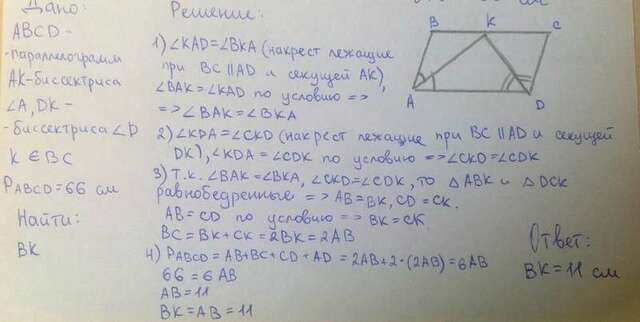 Дано:
ABCD -
- параллелограмм
AK - биссектриса
∠A, DK -
- биссектриса ∠D
K ∈ BC
PABCD = 66 см
Найти:
BK
Решение:
1) ∠KAD = ∠BKA (накрест лежащие
при BC ∥ AD и секущей AK),
∠BAK = ∠KAD по условию =>
=> ∠BAK = ∠BKA
2) ∠KDA = ∠CKD (накрест лежащие при BC ∥ AD и секущей
DK), ∠KDA = ∠CDK по условию => ∠CKD = ∠CDK
3) Т.к. ∠BAK = ∠BKA, ∠CKD = ∠CDK, то △ABK и △DCK
равнобедренные => AB = BK, CD = CK.
AB = CD по условию => BK = CK.
BC = BK + CK = 2BK = 2AB
4) PABCD = AB + BC + CD + AD = 2AB + 2·(2AB) = 6AB
66 = 6AB
AB = 11
BK = AB = 11
B K C
A D
Ответ:
BK = 11 см